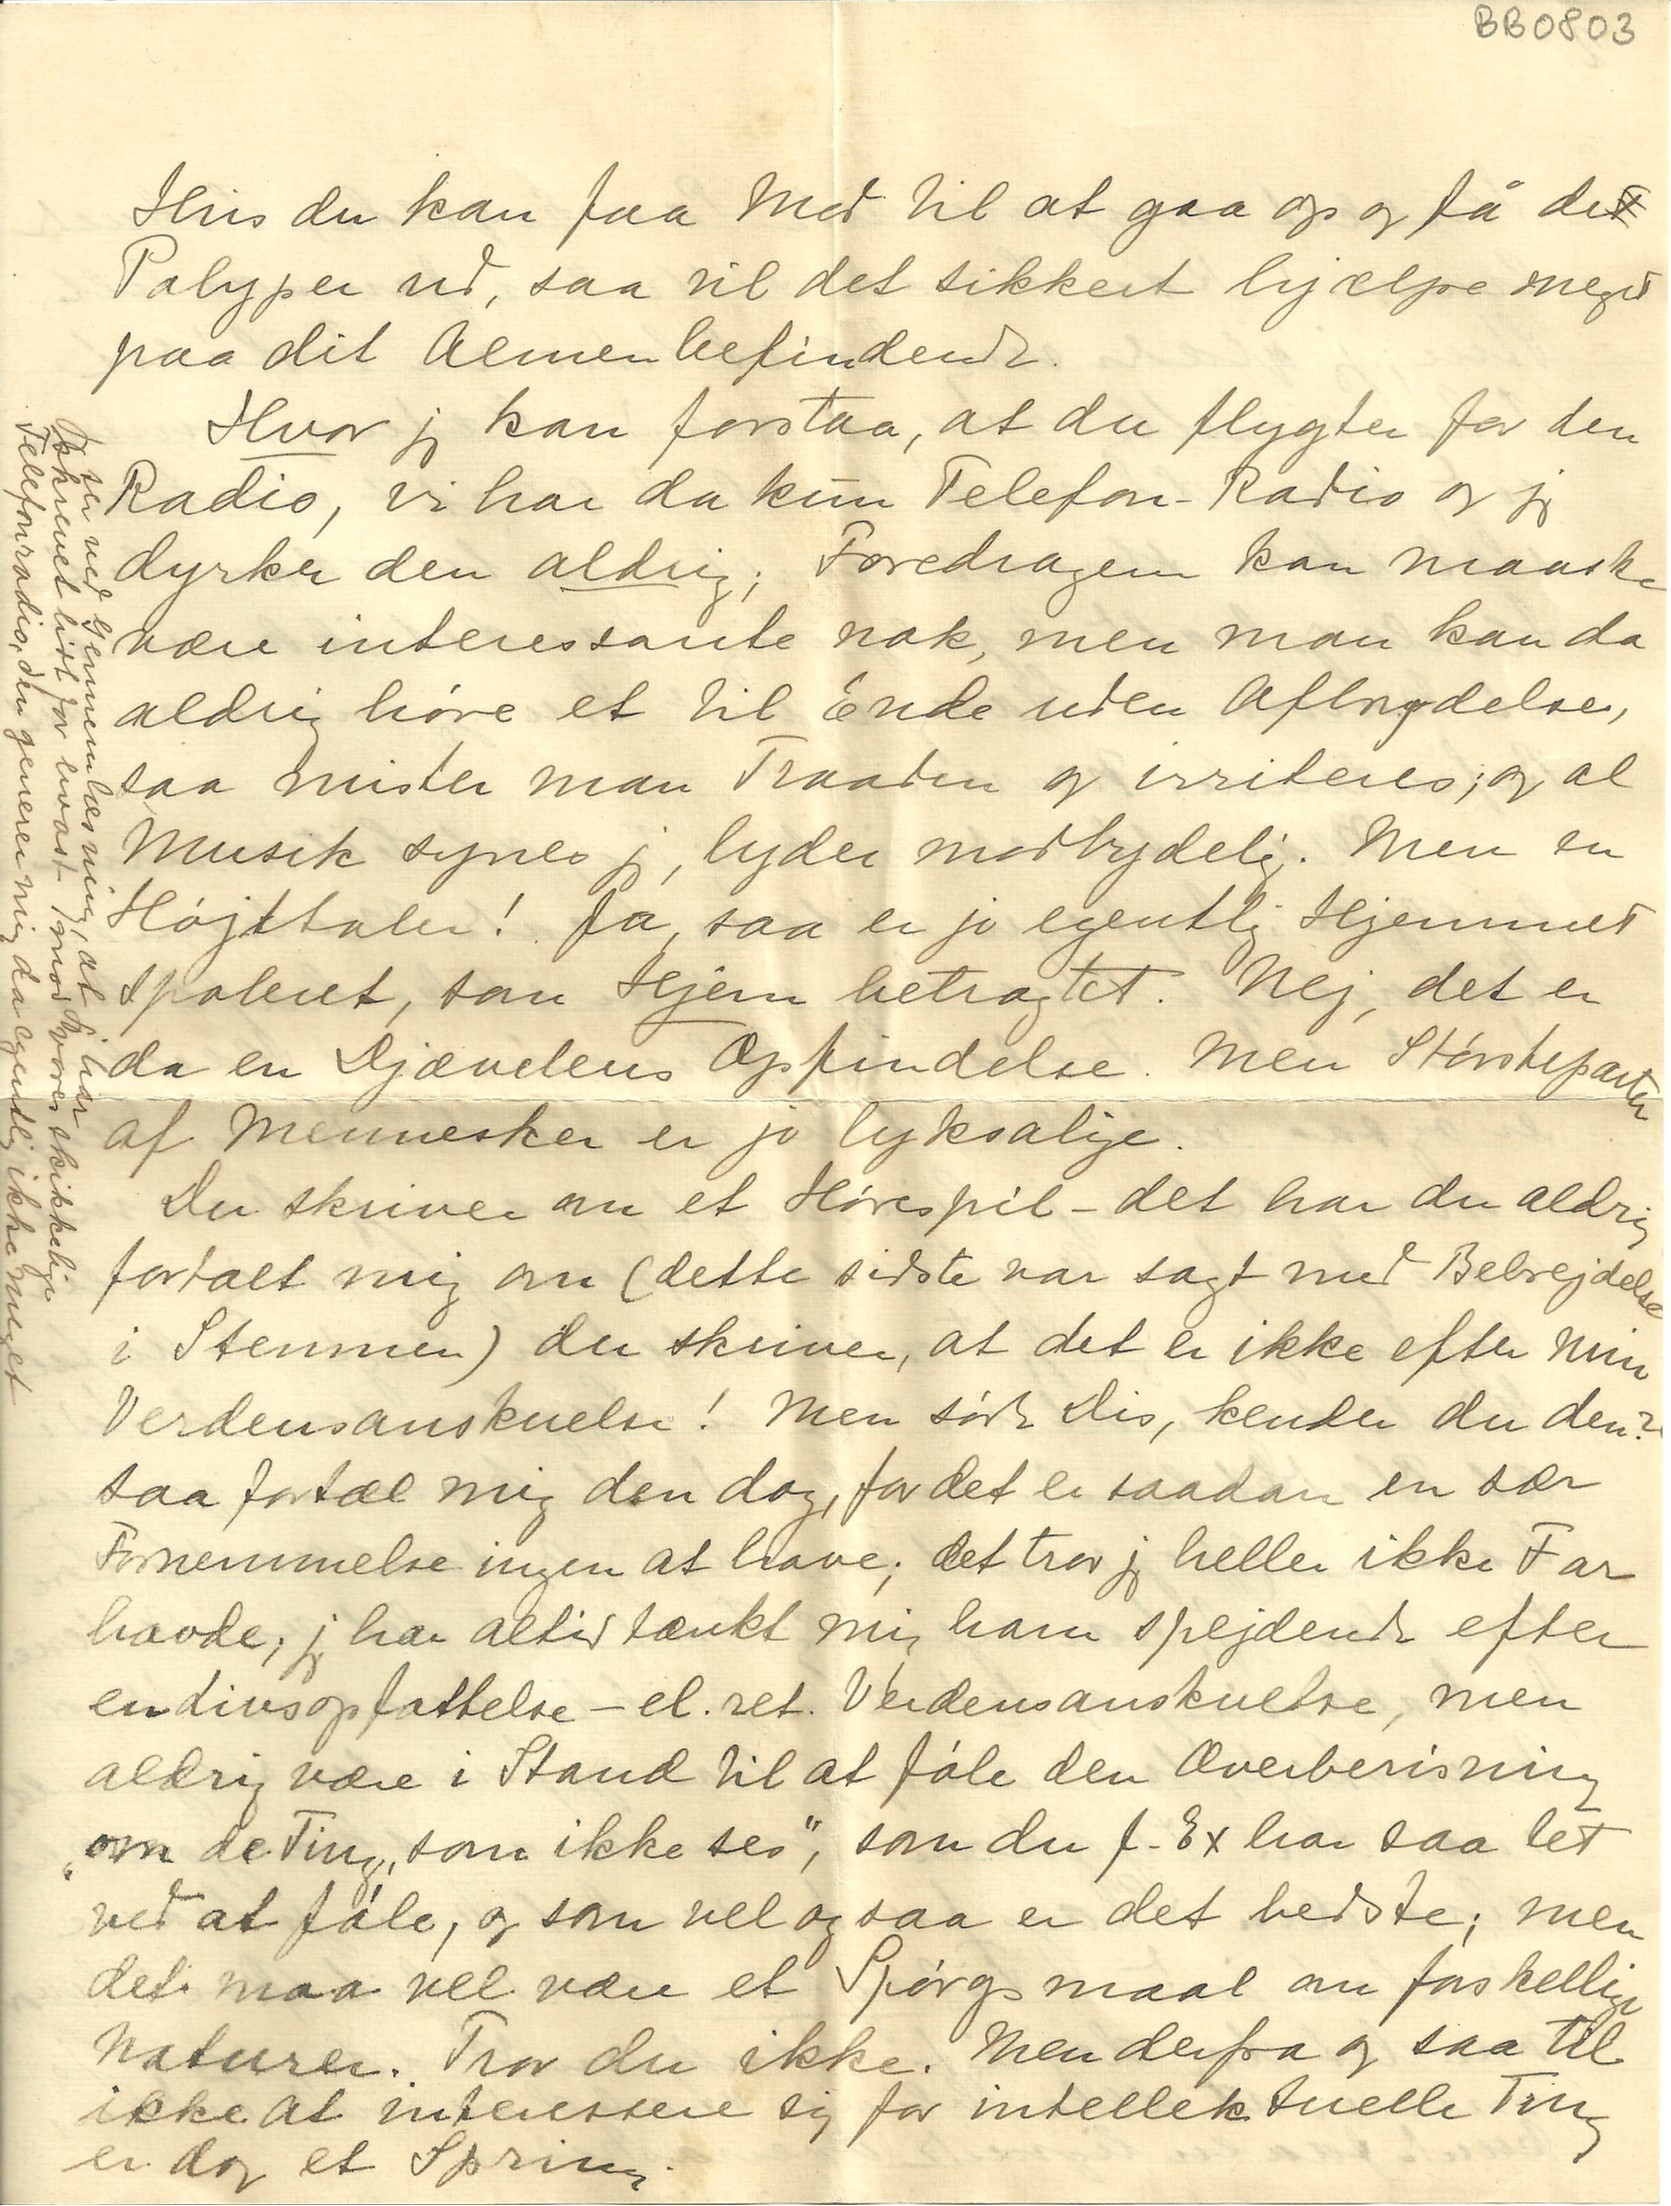 BB0803
Hvis du kan faa Mod til at gaa op og få det
Polyper ud, saa vil det sikkert hjælpe meget
paa dit Almenbefindende.
Hvor jeg kan forstaa, at du flygter for den
Radio, vi har da kun Telefon-Radio og jeg
dyrker den aldrig; Foredragene kan maaske
være interessante nok, men man kan da
aldrig höre et til Ende uden Afbrydelse,
saa mister man Traaden og irriteres; og al
Musik synes jeg, lyder modbydelig. Men en
Højttaler! Ja, saa er jo egentlig Hjemmet
spoleret, som Hjem betragtet. Nej, det er
da en Djævelens Opfindelse. Men Størsteparten
af Mennesker er jo lyksalige.
Du skriver om et Hörespil - det har du aldrig
fortalt mig om (dette sidste var sagt med Bebrejdelse
i Stemmen) du skriver, at det er ikke efter min
Verdensanskuelse! Men søde Dis, kender du den?
saa fortæl mig den dog, for det er saadan en sær
Fornemmelse ingen at have; det tror jeg heller ikke Far
havde; jeg har altid tænkt mig ham spejdende efter
en Livsopfattelse - el. ret. Verdensanskuelse, men
aldrig være i Stand til at föle den Overbevisning
"om de Ting, som ikke ses", som du f. Ex har saa let
ved at föle, og som vel ogsaa er det bedste; men
det maa vel være et Spörgsmaal om forskellige
Naturer. Tror du ikke. Men derfra og saa til
ikke at interessere sig for intellektuelle Ting
er dog et Spring.
Jeg ser ved Gennemlæsning, at jeg har
skrevet lidt for hvast imod vores skikkelige
Telefonradio, den generer mig da egentlig ikke meget